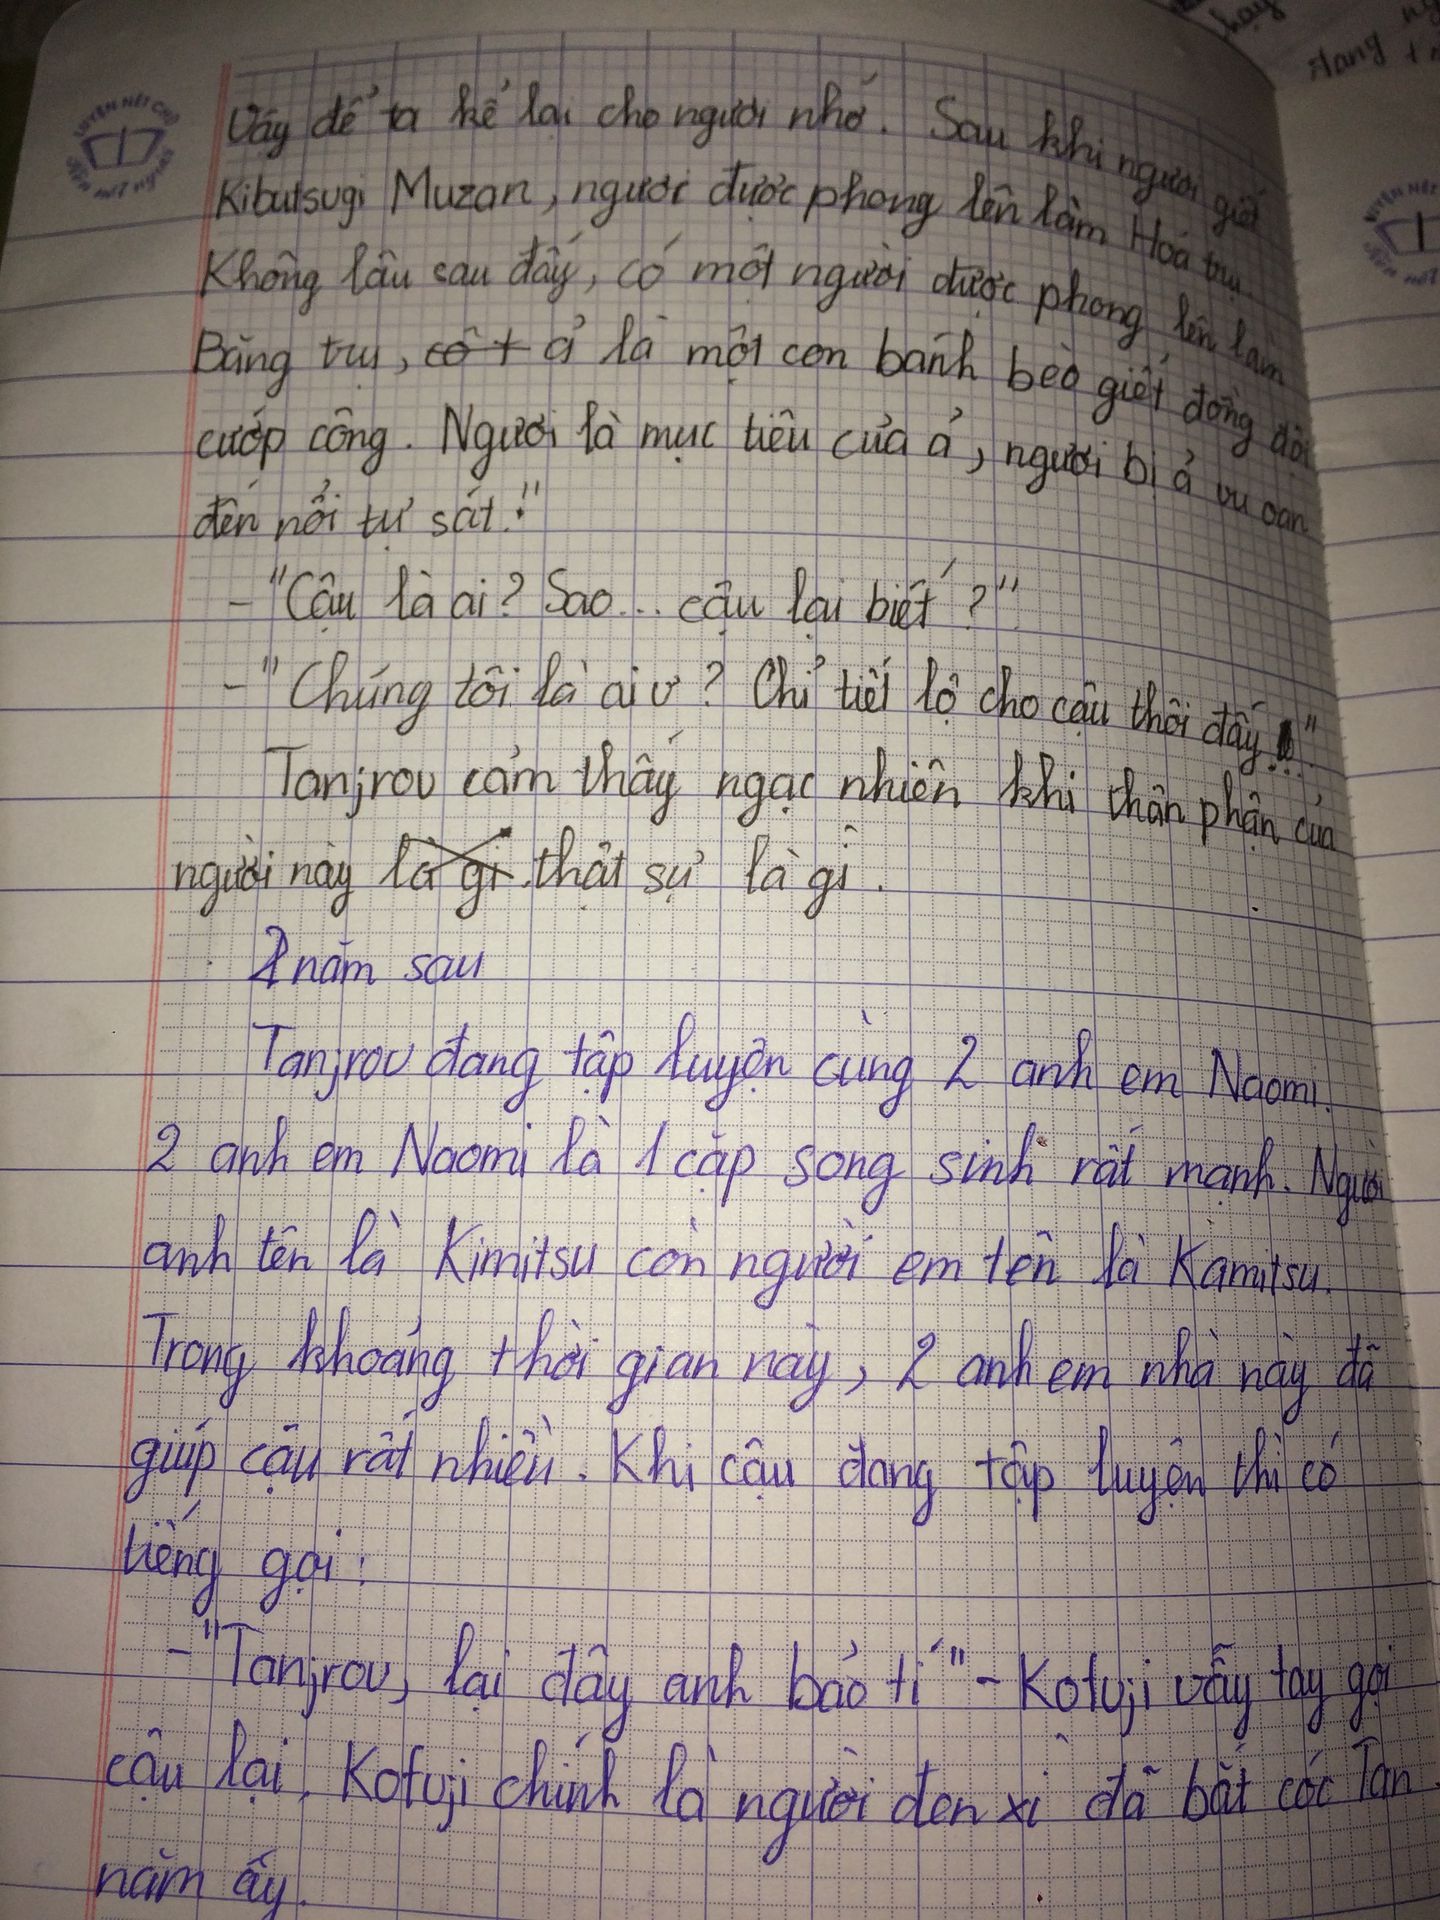 Vậy để ta kể lại cho ngươi nhớ. Sau khi ngươi giết
Kibutsugi Muzan, ngươi được phong lên làm Hoả trụ.
Không lâu sau đấy, có một người được phong lên làm
Băng trụ, ả là một con bánh bèo giết đồng đội
cướp công. Ngươi là mục tiêu của ả, ngươi bị ả vu oan
đến nổi tự sát."
- "Cậu là ai? Sao... cậu lại biết?"
- "Chúng tôi là ai ư? Chỉ tiết lộ cho cậu thôi đấy."
Tanjrou cảm thấy ngạc nhiên khi thân phận của
người này thật sự là gì.
2 năm sau
Tanjrou đang tập luyện cùng 2 anh em Naomi.
2 anh em Naomi là 1 cặp song sinh rất mạnh. Người
anh tên là Kimitsu còn người em tên là Kamitsu.
Trong khoảng thời gian này, 2 anh em nhà này đã
giúp cậu rất nhiều. Khi cậu đang tập luyện thì có
tiếng gọi:
- "Tanjrou, lại đây anh bảo tí" - Kofuji vẫy tay gọi
cậu lại. Kofuji chính là người đen xì đã bắt cóc Tan
năm ấy.
LUYỆN NÉT CHỮ
RÈN NẾT NGƯỜI